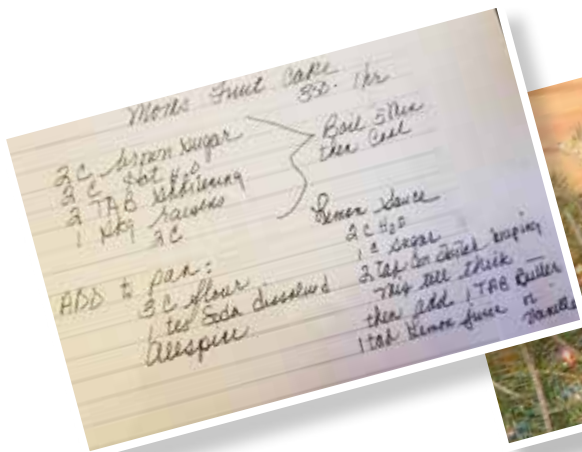 Moms Fruit Cake
350. 1 hr
2 C brown sugar
2 C Hot H2O
2 TAB shortening
1 pkg raisins
2C
Boil 5 Min
then Cool
ADD to pan:
3 C flour
1 tea Soda dissolved
Allspice
Lemon Sauce
2 C H2O
1 C sugar
2 Tab Corn Starch heaping
Mix till thick
then add 1 TAB Butter
1 tab Lemon juice n
Vanilla